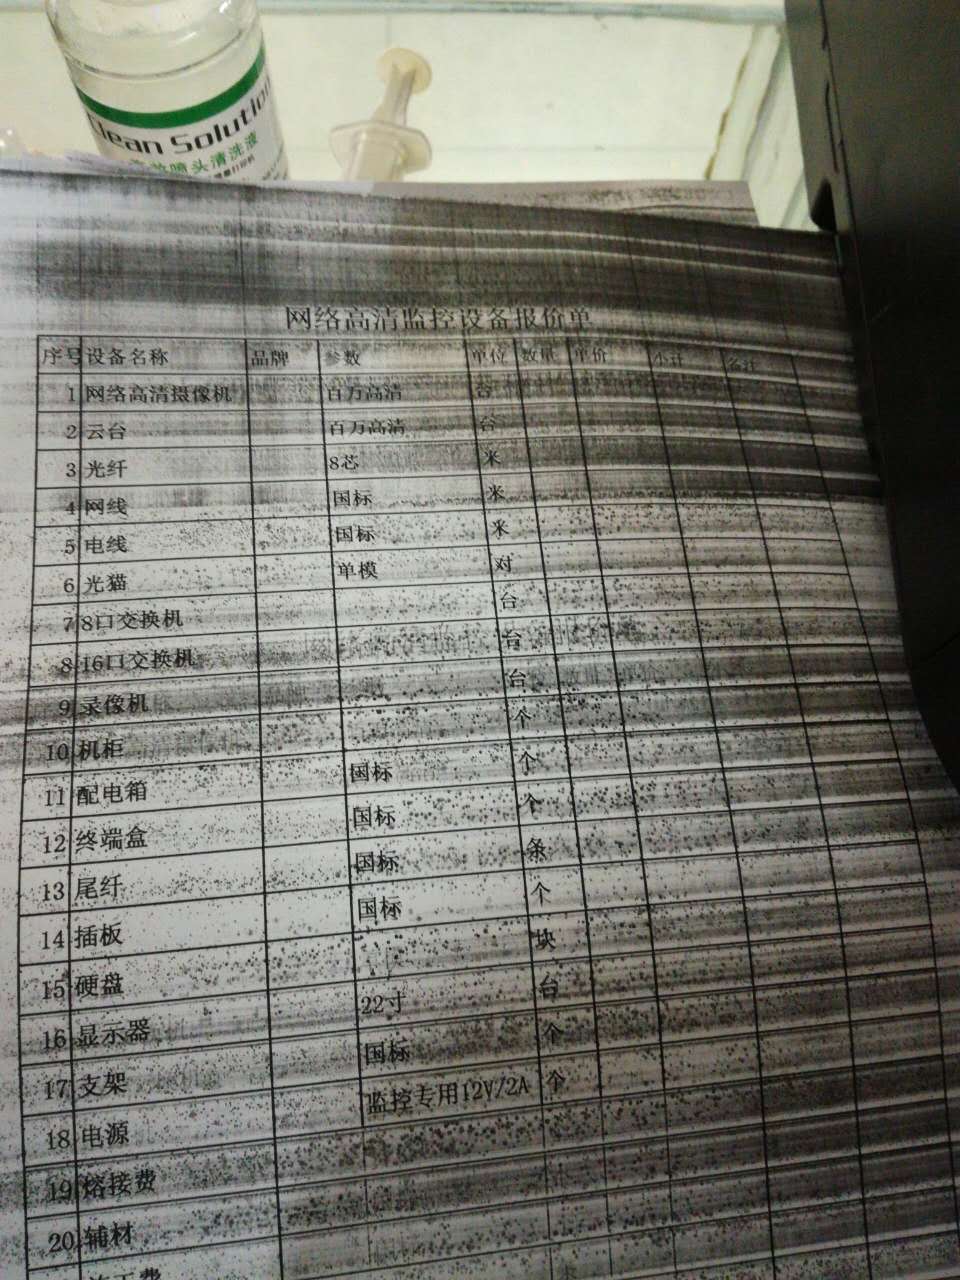 Clean Solution
喷头清洗液
网络高清监控设备报价单
序号 设备名称 品牌 参数 单位 数量 单价 小计 备注
1 网络高清摄像机 百万高清 台
2 云台 百万高清 台
3 光纤 8芯 米
4 网线 国标 米
5 电线 国标 米
6 光猫 单模 对
7 8口交换机 台
8 16口交换机 台
9 录像机 台
10 机柜 个
11 配电箱 国标 个
12 终端盒 国标 个
13 尾纤 国标 条
14 插板 国标 个
15 硬盘 块
16 显示器 22寸 台
17 支架 国标 个
18 电源 监控专用12V/2A 个
19 熔接费
20 辅材